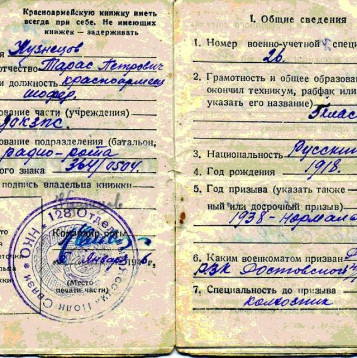 Красноармейскую книжку иметь
всегда при себе. Не имеющих
книжек — задерживать
Кузнецов
отчество Тарас Петрович
и должность красноармеец
шофер.
ование части (учреждения)
ование подразделения (батальон,
радио-рота
ого знака
подпись владельца книжки
Командир роты
января
(Место
печати части)
128 Отдел
Связи НКО
I. Общие сведения
1. Номер военно-учетной специ
26.
2. Грамотность и общее образова
окончил техникум, рабфак или
указать его название)
3. Национальность Русский
4. Год рождения 1918.
5. Год призыва (указать также
ный или досрочный призыв)
1938 - нормаль
6. Каким военкоматом призван
РВК Ростовского
7. Специальность до призыва
колхозник